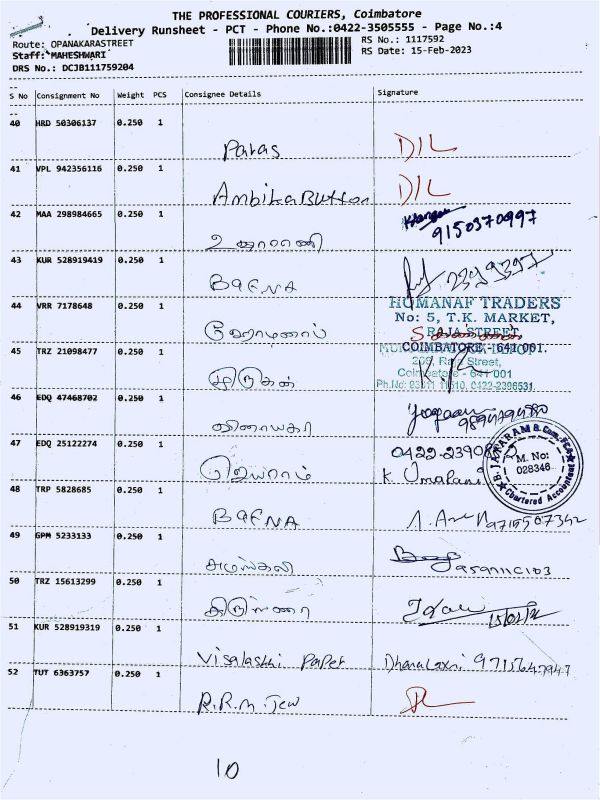 THE PROFESSIONAL COURIERS, Coimbatore
Delivery Runsheet - PCT - Phone No.:0422-3505555 - Page No.:4
Route: OPANAKARASTREET
RS No.: 1117592
Staff: MAHESHWARI
RS Date: 15-Feb-2023
DRS No.: DCJB111759204
S No Consignment No Weight PCS Consignee Details Signature
40 HRD 50306137 0.250 1
Paras D/L
41 VPL 942356116 0.250 1
Ambika Button D/L
42 MAA 298984665 0.250 1
9150370997
43 KUR 528919419 0.250 1
BAFNA
44 VRR 7178648 0.250 1
HOMANAF TRADERS
No: 5, T.K. MARKET,
RAJA STREET,
COIMBATORE - 641 001.
45 TRZ 21098477 0.250 1
Raja Street,
Coimbatore - 641 001
முருகன்
46 EDQ 47468702 0.250 1
விநாயகா
47 EDQ 25122274 0.250 1
ஜெயராம் K. Umarani
B. JAYARAM & Com. FCA
M. No:
028346
Chartered Accountant
48 TRP 5828685 0.250 1
BAFNA 9715507342
49 GPM 5233133 0.250 1
50 TRZ 15613299 0.250 1
51 KUR 528919319 0.250 1
Visalashi Paper Dhanalaxmi 9715647947
52 TUT 6363757 0.250 1
R.R.M. Jew
10